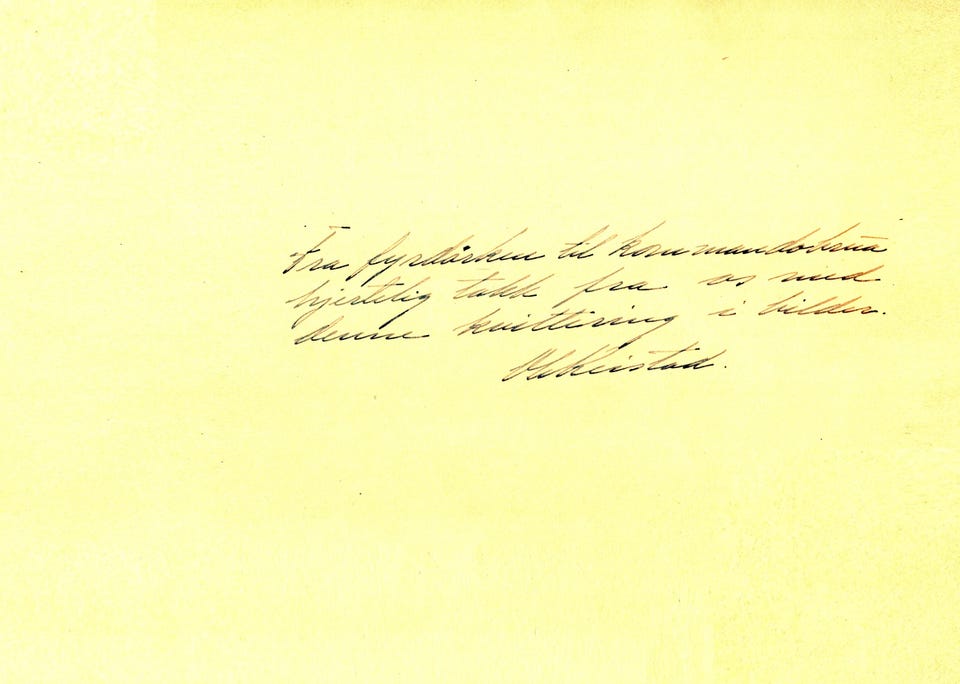 Fra fyrdørken til kommandobrua
hjertelig takk fra os med
denne kvittering i bilder.